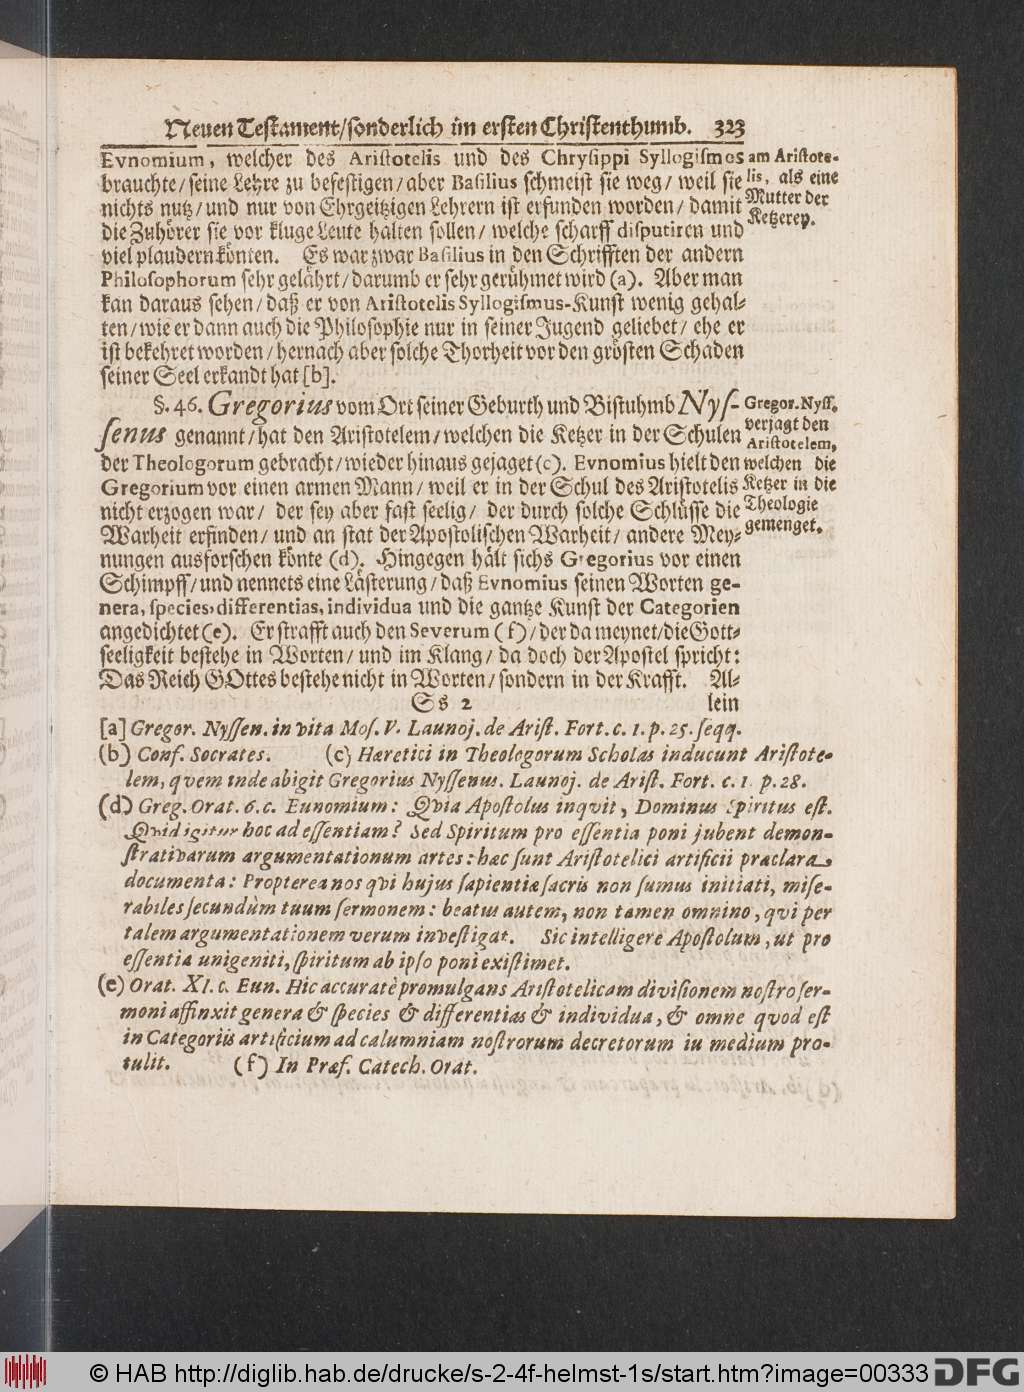 Neuen Testament/sonderlich im ersten Christenthumb. 323
Evnomium, welcher des Aristotelis und des Chrysippi Syllogismos
brauchte/seine Lehre zu befestigen/aber Basilius schmeist sie weg/weil sie
nichts nutz/und nur von Ehrgeitzigen Lehrern ist erfunden worden/damit
die Zuhörer sie vor kluge Leute halten sollen/welche scharff disputiren und
viel plaudern könten. Es war zwar Basilius in den Schrifften der andern
Philosophorum sehr gelährt/darumb er sehr gerühmet wird (a). Aber man
kan daraus sehen/daß er von Aristotelis Syllogismus-Kunst wenig gehal-
ten/wie er dann auch die Philosophie nur in seiner Jugend geliebet/ehe er
ist bekehret worden/hernach aber solche Thorheit vor den grösten Schaden
seiner Seel erkandt hat [b].
am Aristote-
lis, als eine
Mutter der
Ketzerey.
§. 46. Gregorius vom Ort seiner Geburth und Bistuhmb Nys-
senus genannt/hat den Aristotelem/welchen die Ketzer in der Schulen
der Theologorum gebracht/wieder hinaus gejaget (c). Evnomius hielt den
Gregorium vor einen armen Mann/weil er in der Schul des Aristotelis
nicht erzogen war/der sey aber fast seelig/der durch solche Schlüsse die
Warheit erfinden/und an stat der Apostolischen Warheit/andere Mey-
nungen ausforschen könte (d). Hingegen hält sichs Gregorius vor einen
Schimpff/und nennets eine Lästerung/daß Evnomius seinen Worten ge-
nera, species, differentias, individua und die gantze Kunst der Categorien
angedichtet (e). Er strafft auch den Severum (f)/der da meynet/die Gott-
seeligkeit bestehe in Worten/und im Klang/da doch der Apostel spricht:
Das Reich GOttes bestehe nicht in Worten/sondern in der Krafft. Al-
Gregor. Nyss.
verjagt den
Aristotelem,
welchen die
Ketzer in die
Theologie
gemenget.
Ss 2 lein
[a] Gregor. Nyssen. in vita Mos. V. Launoj. de Arist. Fort. c. 1. p. 25. seqq.
(b) Conf. Socrates. (c) Hæretici in Theologorum Scholas inducunt Aristote-
lem, qvem inde abigit Gregorius Nyssenus. Launoj. de Arist. Fort. c. 1. p. 28.
(d) Greg. Orat. 6. c. Eunomium: Qvia Apostolus inqvit, Dominus Spiritus est.
Qvid igitur hoc ad essentiam? Sed Spiritum pro essentia poni jubent demon-
strativarum argumentationum artes: hæc sunt Aristotelici artificii præclara
documenta: Propterea nos qvi hujus sapientiæ sacris non sumus initiati, mise-
rabiles secundùm tuum sermonem: beatus autem, non tamen omnino, qvi per
talem argumentationem verum investigat. Sic intelligere Apostolum, ut pro
essentia unigeniti, spiritum ab ipso poni existimet.
(e) Orat. XI. c. Eun. Hic accuratè promulgans Aristotelicam divisionem nostro ser-
moni affinxit genera & species & differentias & individua, & omne qvod est
in Categoriis artificium ad calumniam nostrorum decretorum iu medium pro-
tulit. (f) In Præf. Catech. Orat.
© HAB http://diglib.hab.de/drucke/s-2-4f-helmst-1s/start.htm?image=00333 DFG